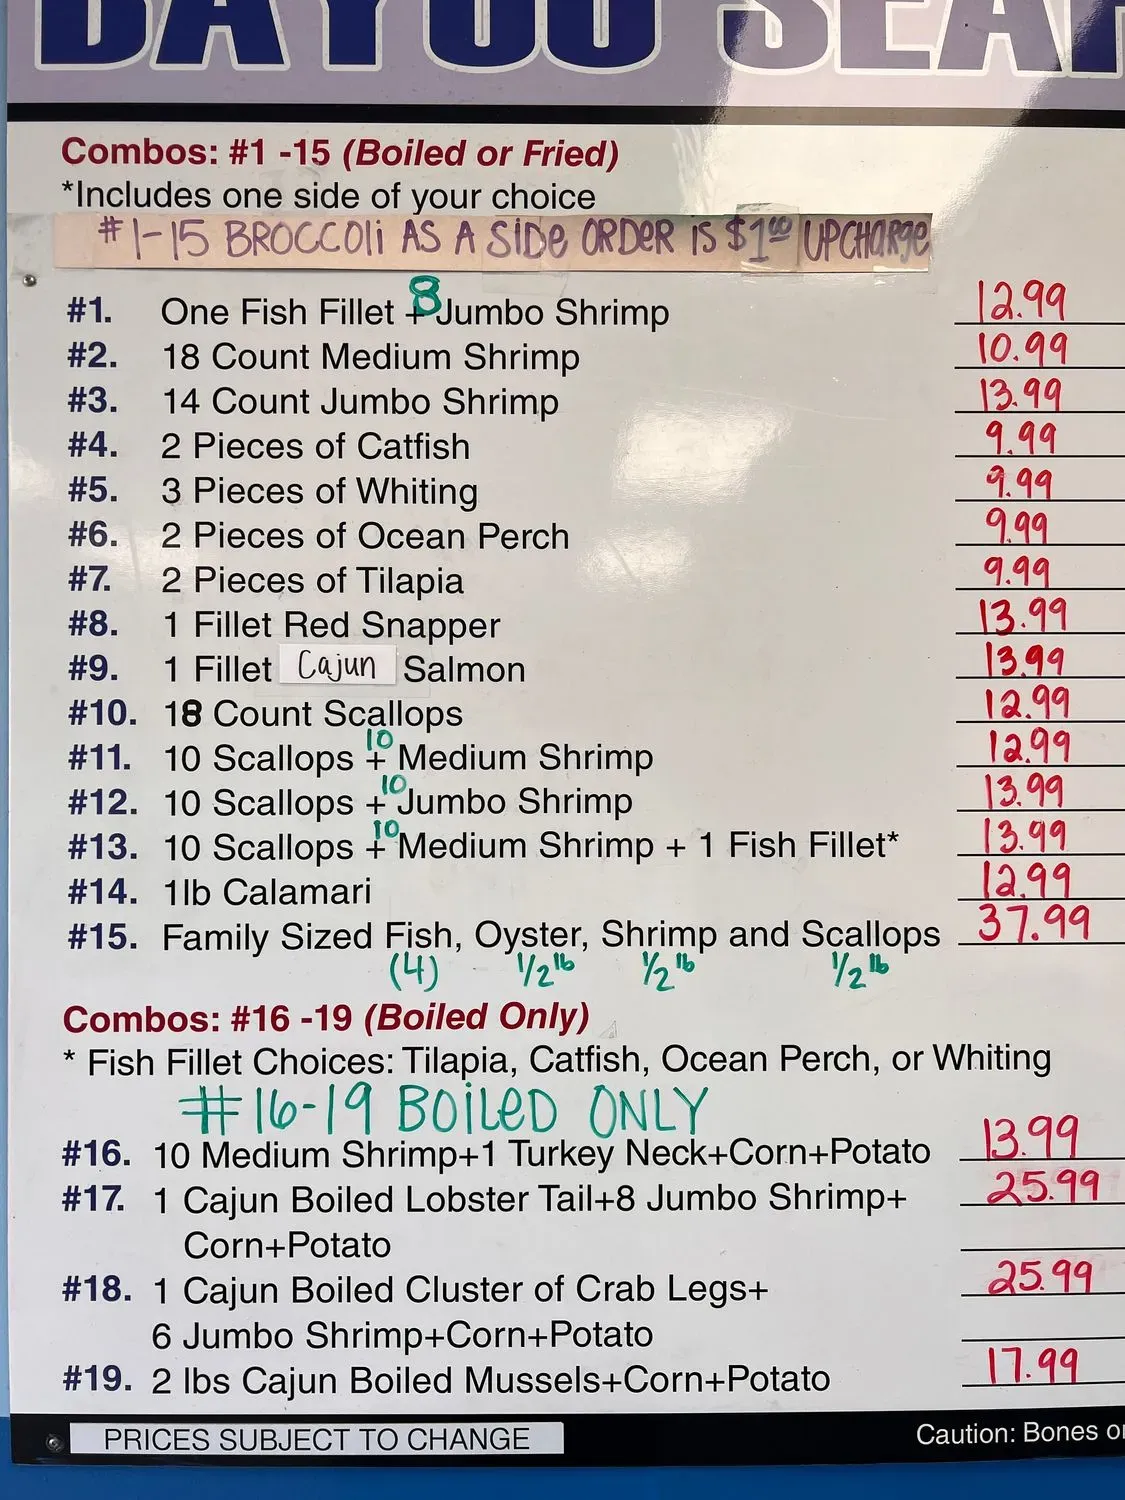 BAYOU SEAF
Combos: #1 -15 (Boiled or Fried)
*Includes one side of your choice
#1-15 BROCCOLi AS A SiDe ORDeR iS $1.00 UPCHARge
#1. One Fish Fillet + 8 Jumbo Shrimp 12.99
#2. 18 Count Medium Shrimp 10.99
#3. 14 Count Jumbo Shrimp 13.99
#4. 2 Pieces of Catfish 9.99
#5. 3 Pieces of Whiting 9.99
#6. 2 Pieces of Ocean Perch 9.99
#7. 2 Pieces of Tilapia 9.99
#8. 1 Fillet Red Snapper 13.99
#9. 1 Fillet Cajun Salmon 13.99
#10. 18 Count Scallops 12.99
#11. 10 Scallops + 10 Medium Shrimp 12.99
#12. 10 Scallops + 10 Jumbo Shrimp 13.99
#13. 10 Scallops + 10 Medium Shrimp + 1 Fish Fillet* 13.99
#14. 1lb Calamari 12.99
#15. Family Sized Fish, Oyster, Shrimp and Scallops 37.99
(4) 1/2 lb 1/2 lb 1/2 lb
Combos: #16 -19 (Boiled Only)
* Fish Fillet Choices: Tilapia, Catfish, Ocean Perch, or Whiting
#16-19 BOiLeD ONLY
#16. 10 Medium Shrimp+1 Turkey Neck+Corn+Potato 13.99
#17. 1 Cajun Boiled Lobster Tail+8 Jumbo Shrimp+ 25.99
Corn+Potato
#18. 1 Cajun Boiled Cluster of Crab Legs+ 25.99
6 Jumbo Shrimp+Corn+Potato
#19. 2 lbs Cajun Boiled Mussels+Corn+Potato 17.99
PRICES SUBJECT TO CHANGE
Caution: Bones